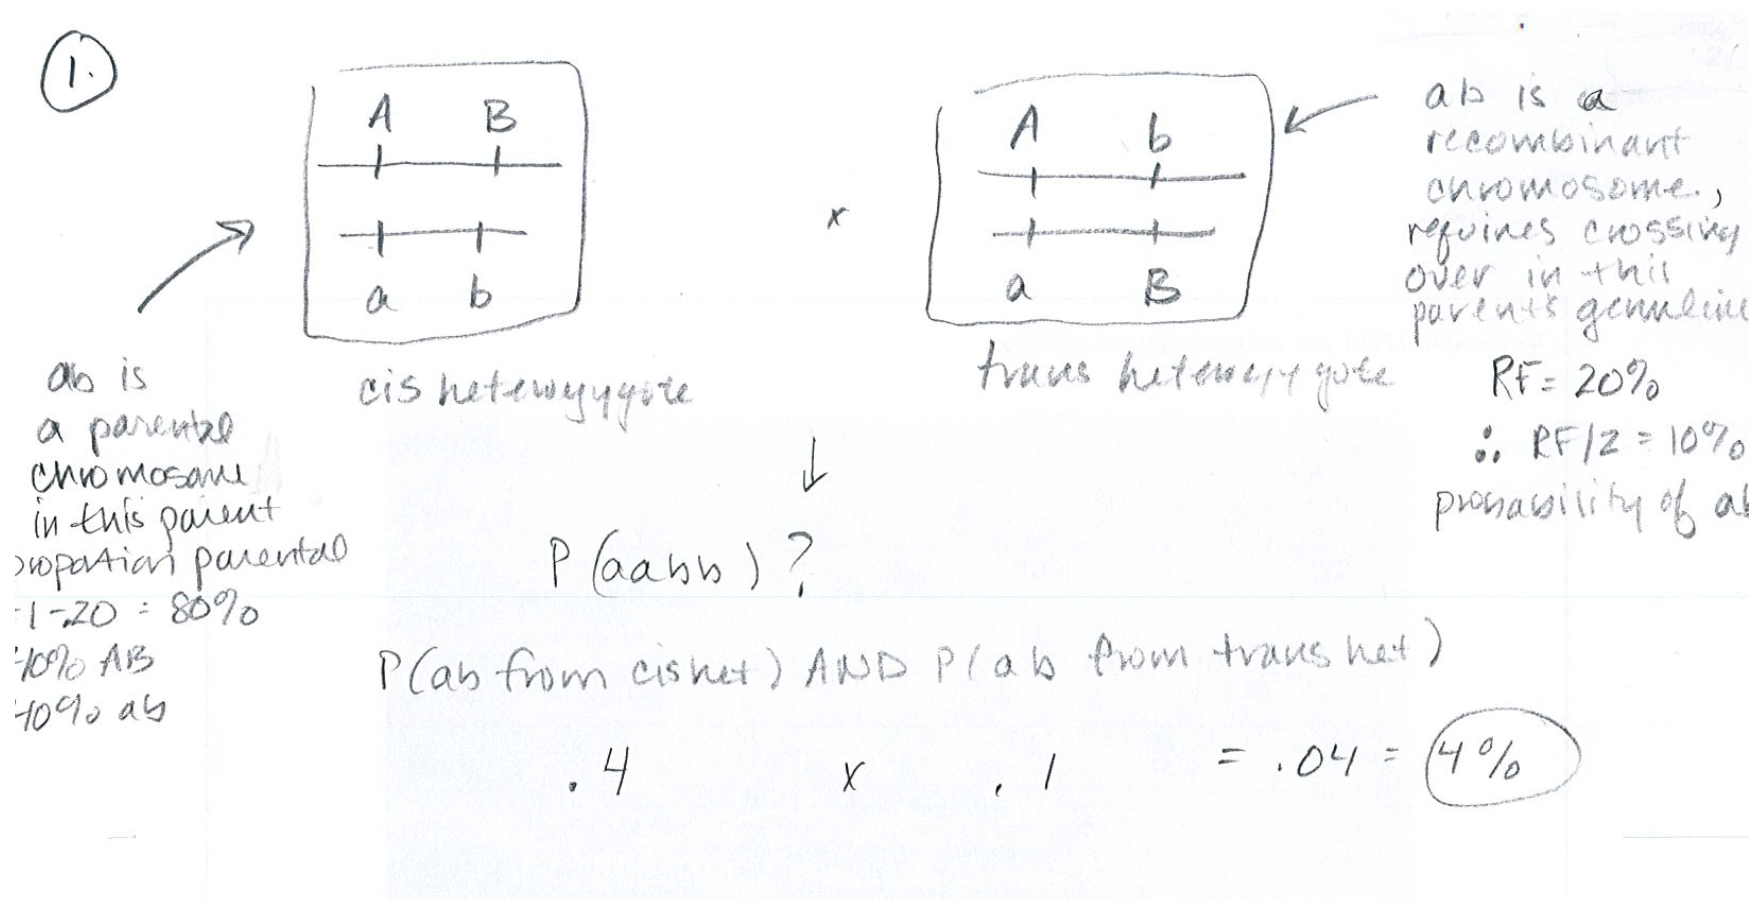 1.
A B
a b
cis heterozygote
x
A b
a B
trans heterozygote
ab is a
recombinant
chromosome,
requires crossing
over in this
parent's germline
RF = 20%
∴ RF/2 = 10%
probability of ab
ab is
a parental
chromosome
in this parent
proportion parental
=1-.20 = 80%
40% AB
40% ab
↓
P(aabb)?
P(ab from cis het) AND P(ab from trans het)
.4 x .1 = .04 = 4%